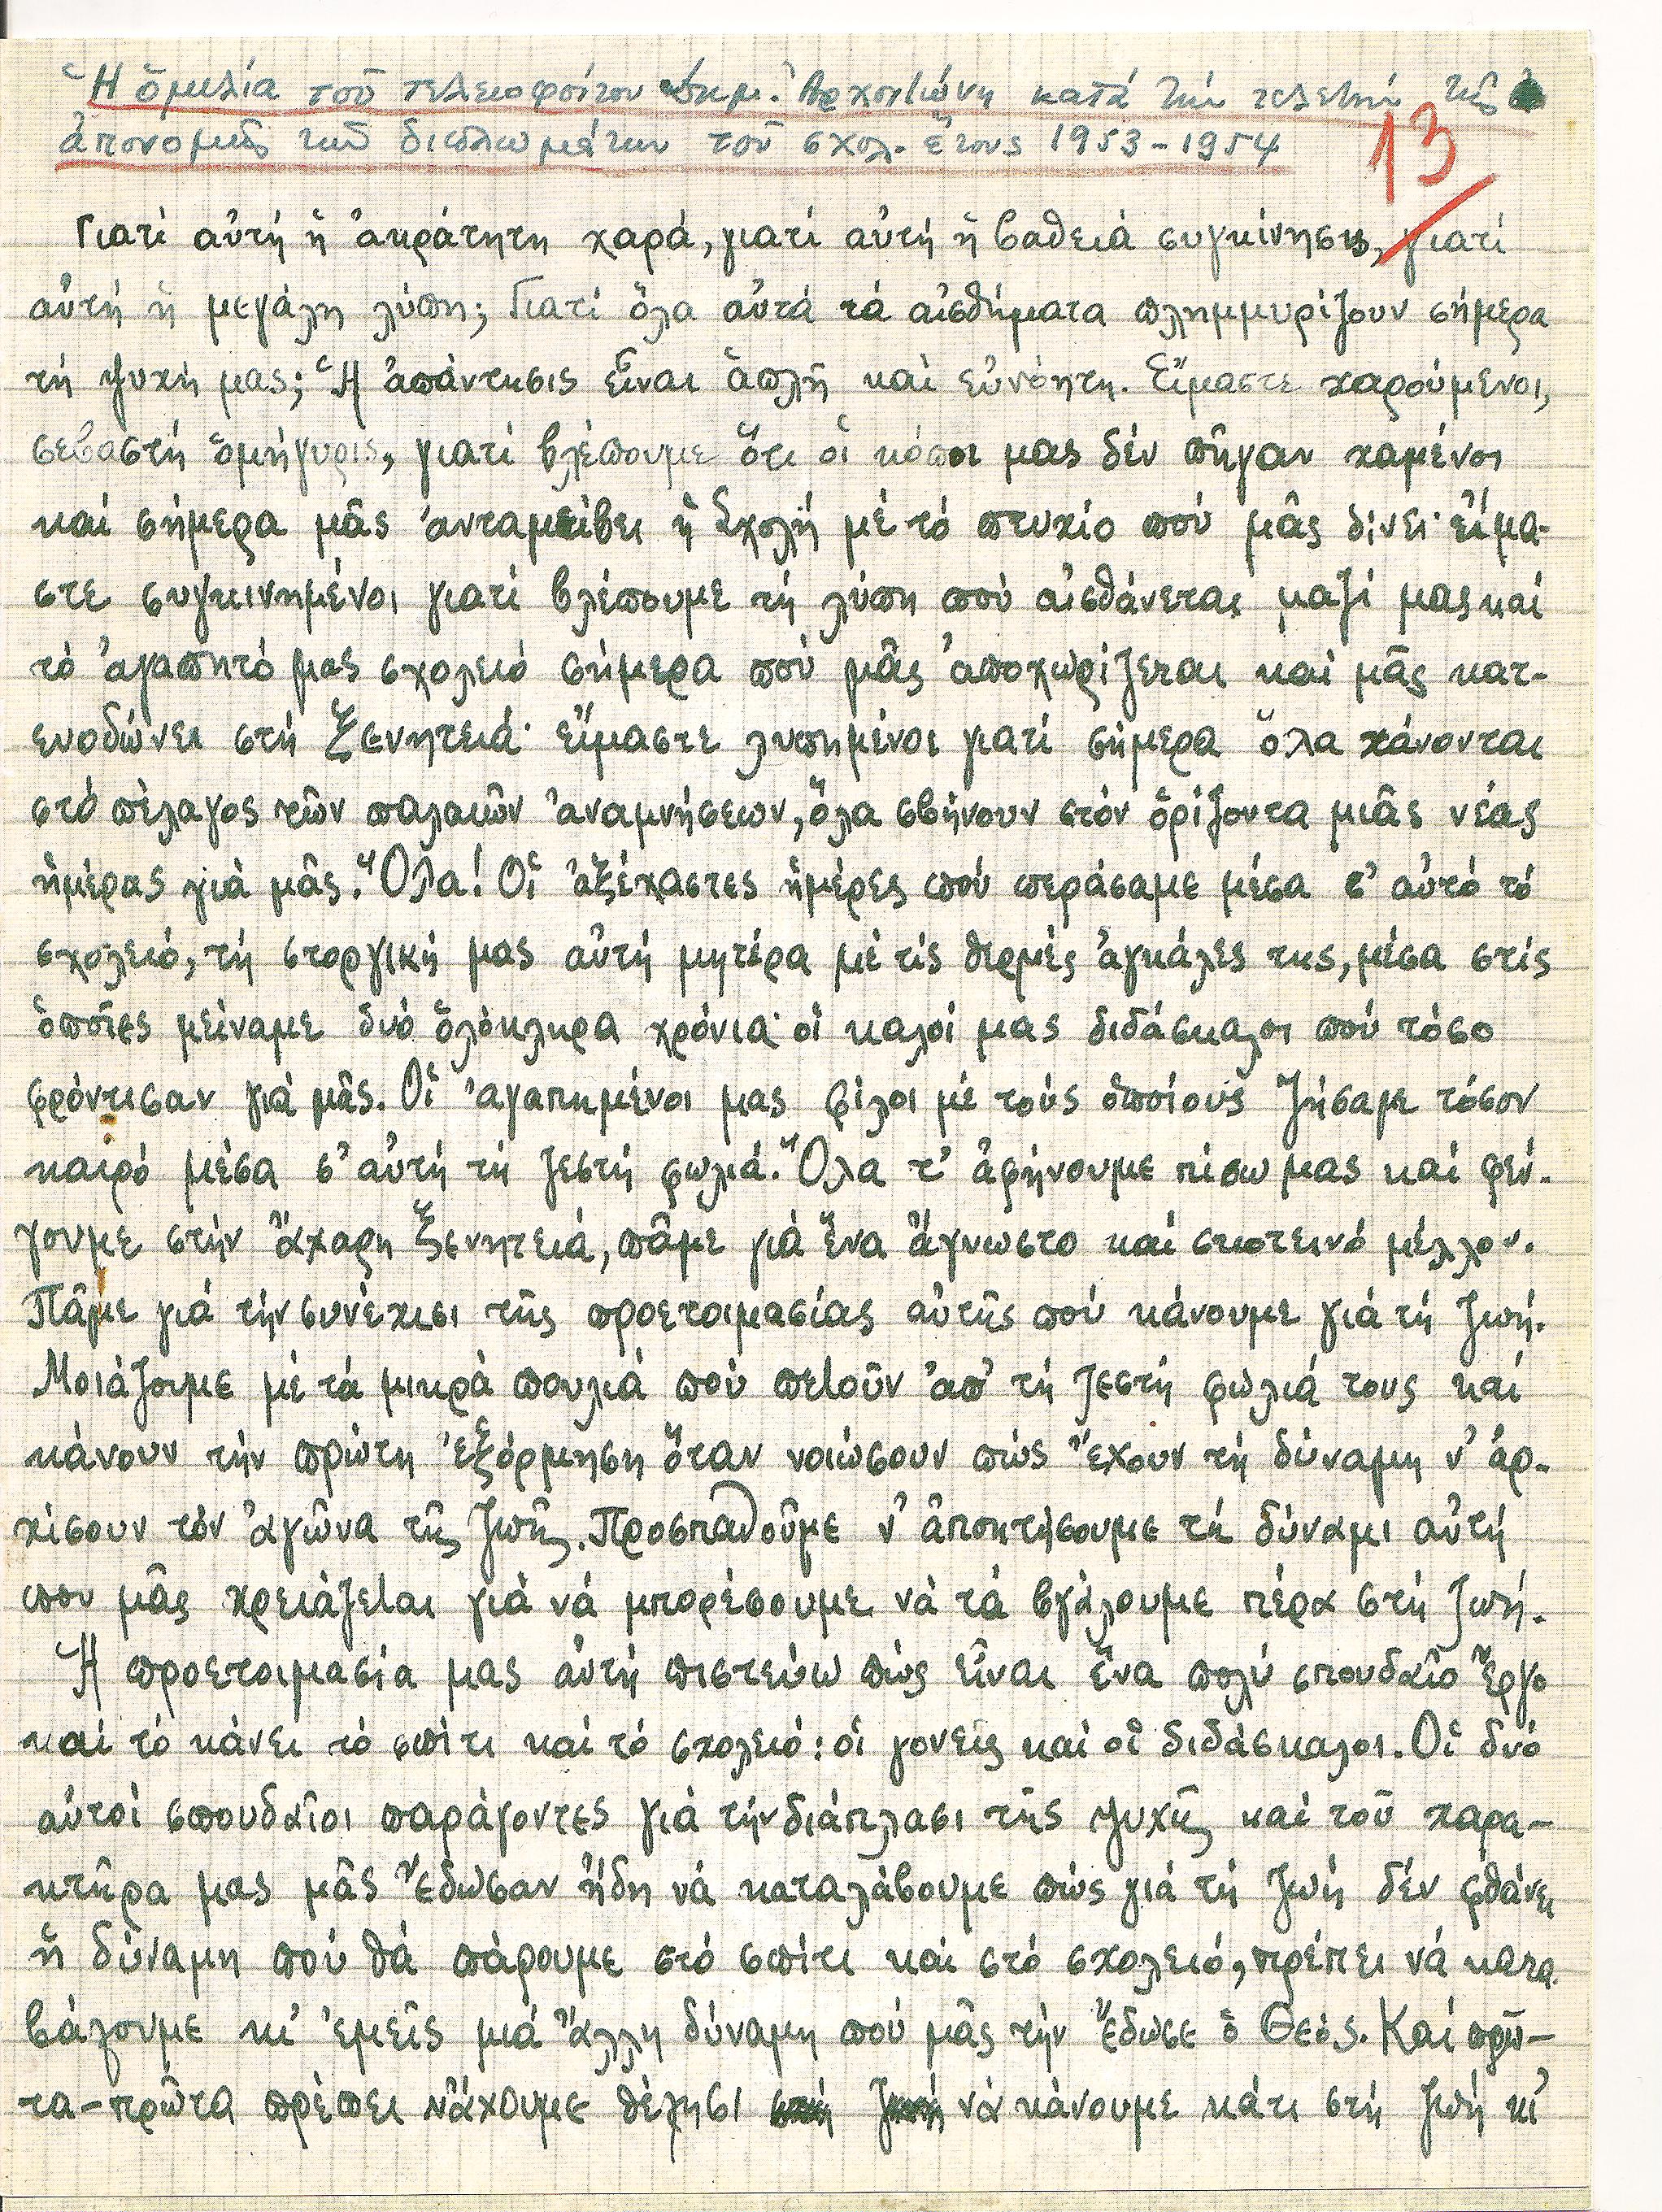 Ἡ ὁμιλία τοῦ τελειοφοίτου Δημ. Ἀρχοντώνη κατά τήν τελετήν τῆς
ἀπονομῆς τῶν διπλωμάτων τοῦ σχολ. ἔτους 1953-1954
13
Γιατί αὐτή ἡ ἀκράτητη χαρά, γιατί αὐτή ἡ βαθειά συγκίνησις, γιατί
αὐτή ἡ μεγάλη λύπη; Γιατί ὅλα αὐτά τά αἰσθήματα πλημμυρίζουν σήμερα
τή ψυχή μας; Ἡ ἀπάντησις εἶναι ἁπλῆ καί εὐνόητη. Εἴμαστε χαρούμενοι,
σεβαστή ὁμήγυρις, γιατί βλέπουμε ὅτι οἱ κόποι μας δέν πῆγαν χαμένοι
καί σήμερα μᾶς ἀνταμείβει ἡ Σχολή μέ τό πτυχίο πού μᾶς δίνει· εἴμα-
στε συγκινημένοι γιατί βλέπουμε τή λύπη πού αἰσθάνεται μαζί μας καί
τό ἀγαπητό μας σχολειό σήμερα πού μᾶς ἀποχωρίζεται καί μᾶς κατ-
ευοδώνει στή ξενητειά· εἴμαστε λυπημένοι γιατί σήμερα ὅλα χάνονται
στό πέλαγος τῶν παλαιῶν ἀναμνήσεων, ὅλα σβήνουν στόν ὁρίζοντα μιᾶς νέας
ἡμέρας γιά μᾶς. Ὅλα! Οἱ ἀξέχαστες ἡμέρες πού περάσαμε μέσα σ' αὐτό τό
σχολειό, τή στοργική μας αὐτή μητέρα μέ τίς θερμές ἀγκάλες της, μέσα στίς
ὁποῖες μείναμε δυό ὁλόκληρα χρόνια· οἱ καλοί μας διδάσκαλοι πού τόσο
φρόντισαν γιά μᾶς. Οἱ ἀγαπημένοι μας φίλοι μέ τούς ὁποίους ζήσαμε τόσον
καιρό μέσα σ' αὐτή τή ζεστή φωλιά. Ὅλα τ' ἀφήνουμε πίσω μας καί φεύ-
γουμε στήν ἄχαρη ξενητειά, πᾶμε γιά ἕνα ἄγνωστο καί σκοτεινό μέλλον.
Πᾶμε γιά τήν συνέχισι τῆς προετοιμασίας αὐτῆς πού κάνουμε γιά τή ζωή.
Μοιάζουμε μέ τά μικρά πουλιά πού πετοῦν ἀπ' τή ζεστή φωλιά τους καί
κάνουν τήν πρώτη ἐξόρμηση ὅταν νοιώσουν πώς ἔχουν τή δύναμη ν' ἀρ-
χίσουν τόν ἀγῶνα τῆς ζωῆς. Προσπαθοῦμε ν' ἀποκτήσουμε τή δύναμι αὐτή
που μᾶς χρειάζεται γιά νά μπορέσουμε νά τά βγάλουμε πέρα στή ζωή.
Ἡ προετοιμασία μας αὐτή πιστεύω πώς εἶναι ἕνα πολύ σπουδαῖο ἔργο
καί τό κάνει τό σπίτι καί τό σχολειό: οἱ γονείς καί οἱ διδάσκαλοι. Οἱ δυό
αὐτοί σπουδαῖοι παράγοντες γιά τήν διάπλασι τῆς ψυχῆς καί τοῦ χαρα-
κτῆρα μας μᾶς ἔδωσαν ἤδη νά καταλάβουμε πώς γιά τή ζωή δέν φθάνει
ἡ δύναμη πού θά πάρουμε στό σπίτι καί στό σχολειό, πρέπει νά κατα
βάλουμε κι' ἐμεῖς μιά ἄλλη δύναμη πού μᾶς τήν ἔδωσε ὁ Θεός. Καί πρῶ-
τα-πρῶτα πρέπει νἄχουμε θέλησι νά κάνουμε κάτι στή ζωή κι'